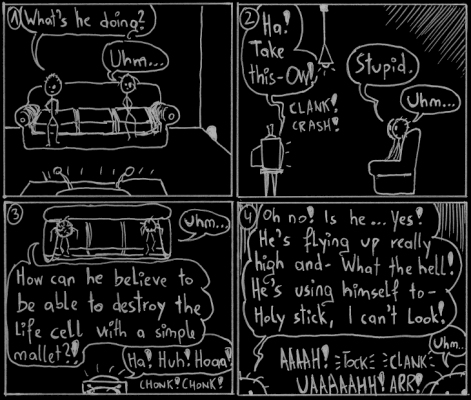 1
What's he doing?
Uhm...
2
Ha!
Take
this-Ow!
CLANK!
CRASH!
Stupid.
Uhm...
3
Uhm...
How can he believe to
be able to destroy the
life cell with a simple
mallet?!
Ha! Huh! Hoaa!
CHONK! CHONK!
4
Oh no! Is he... Yes!
He's flying up really
high and- What the hell!
He's using himself to-
Holy stick, I can't look!
Uhm..
AAAAH! TOCK CLANK
UAAAAAHH! ARR!